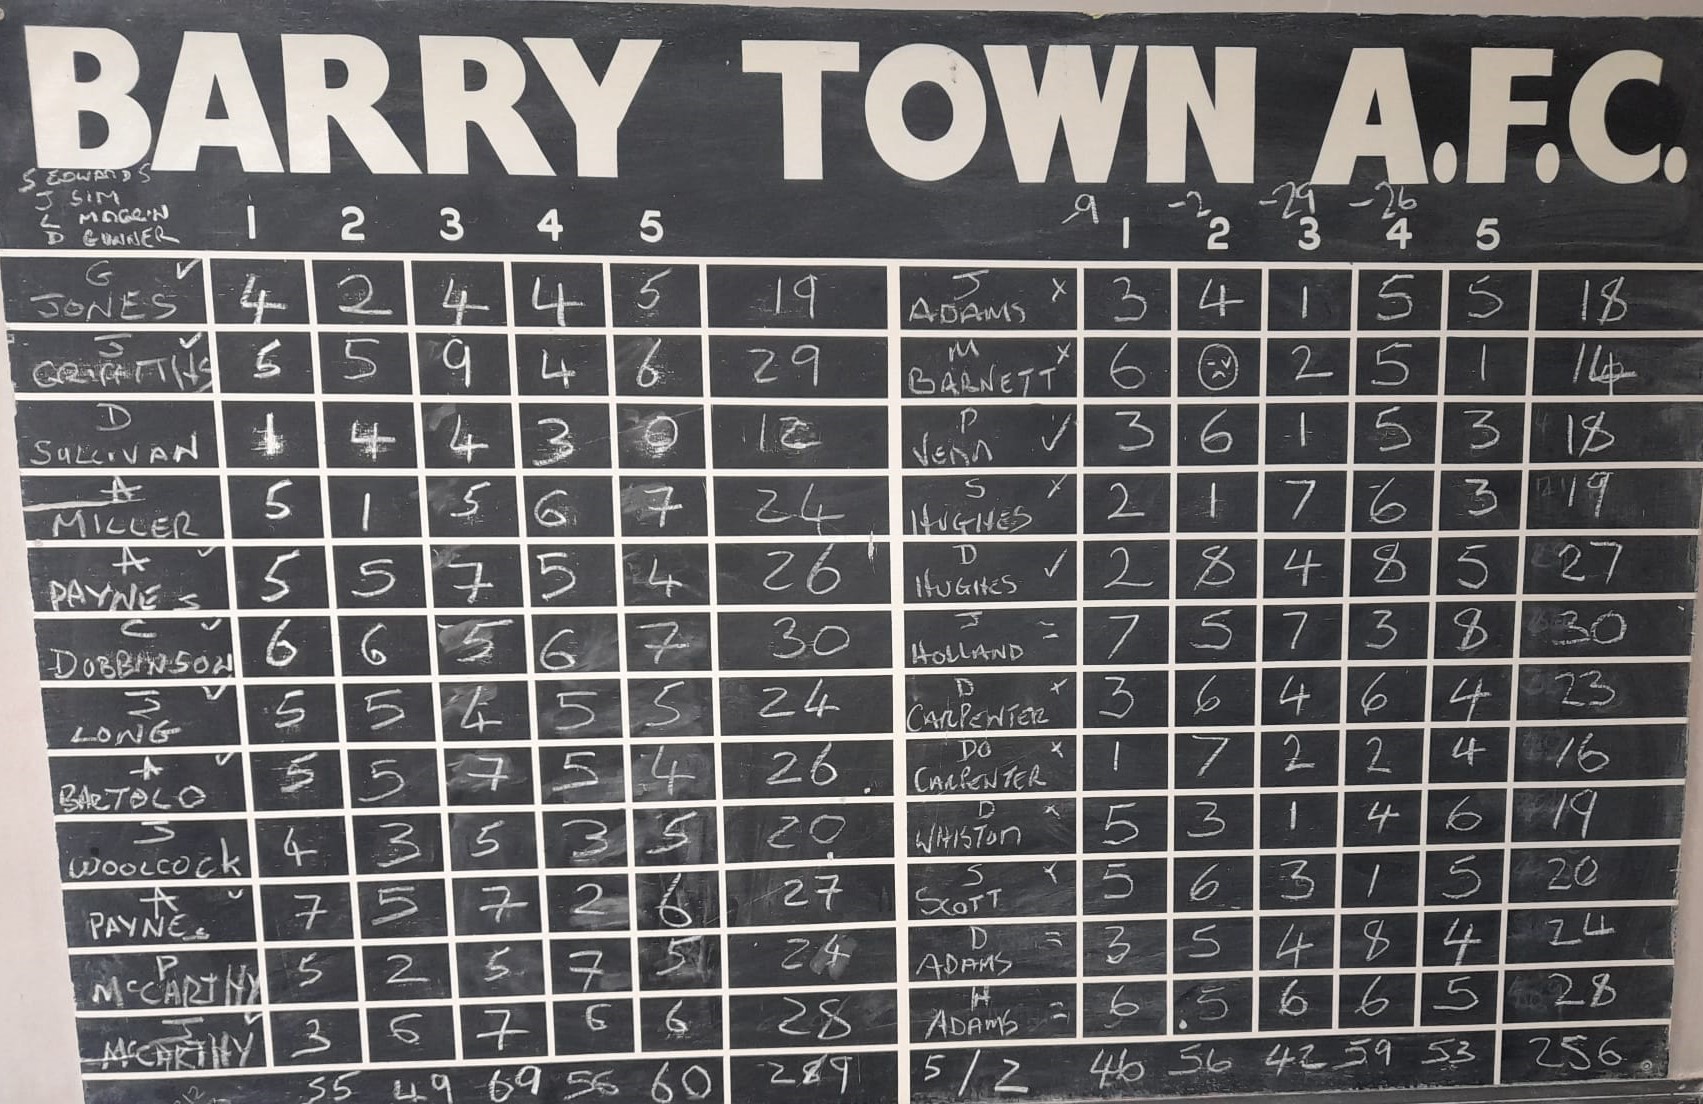 BARRY TOWN A.F.C.
S EDWARDS
J SIM
L MAGRIN
D GUNNER
1 2 3 4 5
G JONES ✓ 4 2 4 4 5 19
J GRIFFITHS ✓ 5 5 9 4 6 29
D SULLIVAN 1 4 4 3 0 12
A MILLER 5 1 5 6 7 24
A PAYNE S ✓ 5 5 7 5 4 26
C DOBBINSON ✓ 6 6 5 6 7 30
J LONG ✓ 5 5 4 5 5 24
A BARTOLO ✓ 5 5 7 5 4 26
J WOOLCOCK 4 3 5 3 5 20
A PAYNE ✓ 7 5 7 2 6 27
P McCARTHY 5 2 5 7 5 24
J McCARTHY ✓ 3 6 7 6 6 28
55 49 69 56 60 289
-9 -2 -29 -26
1 2 3 4 5
J ADAMS x 3 4 1 5 5 18
M BARNETT x 6 2 5 1 14
P VENN ✓ 3 6 1 5 3 18
S HUGHES x 2 1 7 6 3 19
D HUGHES ✓ 2 8 4 8 5 27
J HOLLAND = 7 5 7 3 8 30
D CARPENTER x 3 6 4 6 4 23
DO CARPENTER x 1 7 2 2 4 16
D WHISTON x 5 3 1 4 6 19
S SCOTT x 5 6 3 1 5 20
D ADAMS = 3 5 4 8 4 24
H ADAMS = 6 5 6 6 5 28
5/2 46 56 42 59 53 256